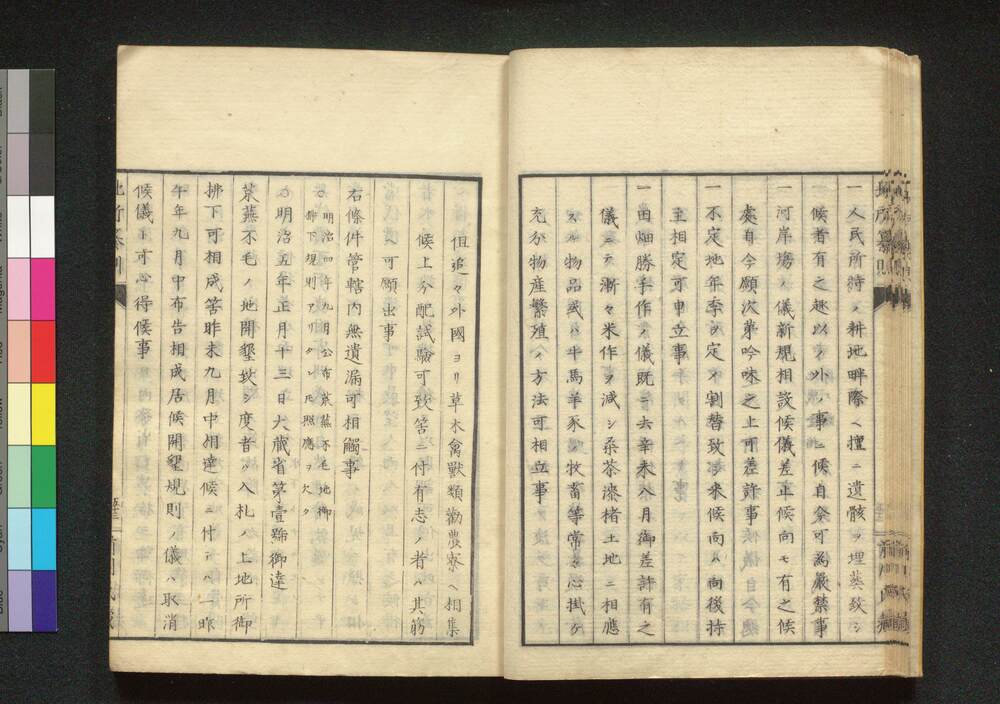 一 人民所持ノ耕地畔際ヘ擅ニ遺骸ヲ埋葬致シ
候者有之趣以ノ外ノ事ニ候自今可為厳禁事
一 河岸場ノ儀新規相設候儀差止候向モ有之候
處自今願次第吟味之上可差許事
一 不定地年季ヲ定メ割替致シ来候向ハ向後持
主相定可申立事
一 田畑勝手作ノ儀既ニ去辛未八月御差許有之
儀ニテ漸々米作ヲ減シ桑茶漆楮土地ニ相應
スル物品或ハ牛馬羊豕ノ牧畜等常ニ心掛ケ
充分物産繁殖ノ方法可相立事
但追々外國ヨリ草木禽獸類勸農寮ヘ相集
候上分配試驗可致筈ニ付有志ノ者ハ其筋
ヘ可願出事
右條件管轄内無遺漏可相觸事
明治四年九月公布荒蕪不毛地御
拂下規則アリタレトモ照應ヲ欠ク
明治五年正月十三日大蔵省第壹號御達
荒蕪不毛ノ地開墾致シ度者ハ入札ノ上地所御
拂下可相成筈昨未九月中相達候ニ付テハ一昨
午年九月中布告相成居候開墾規則ノ儀ハ取消
候儀ト可心得候事